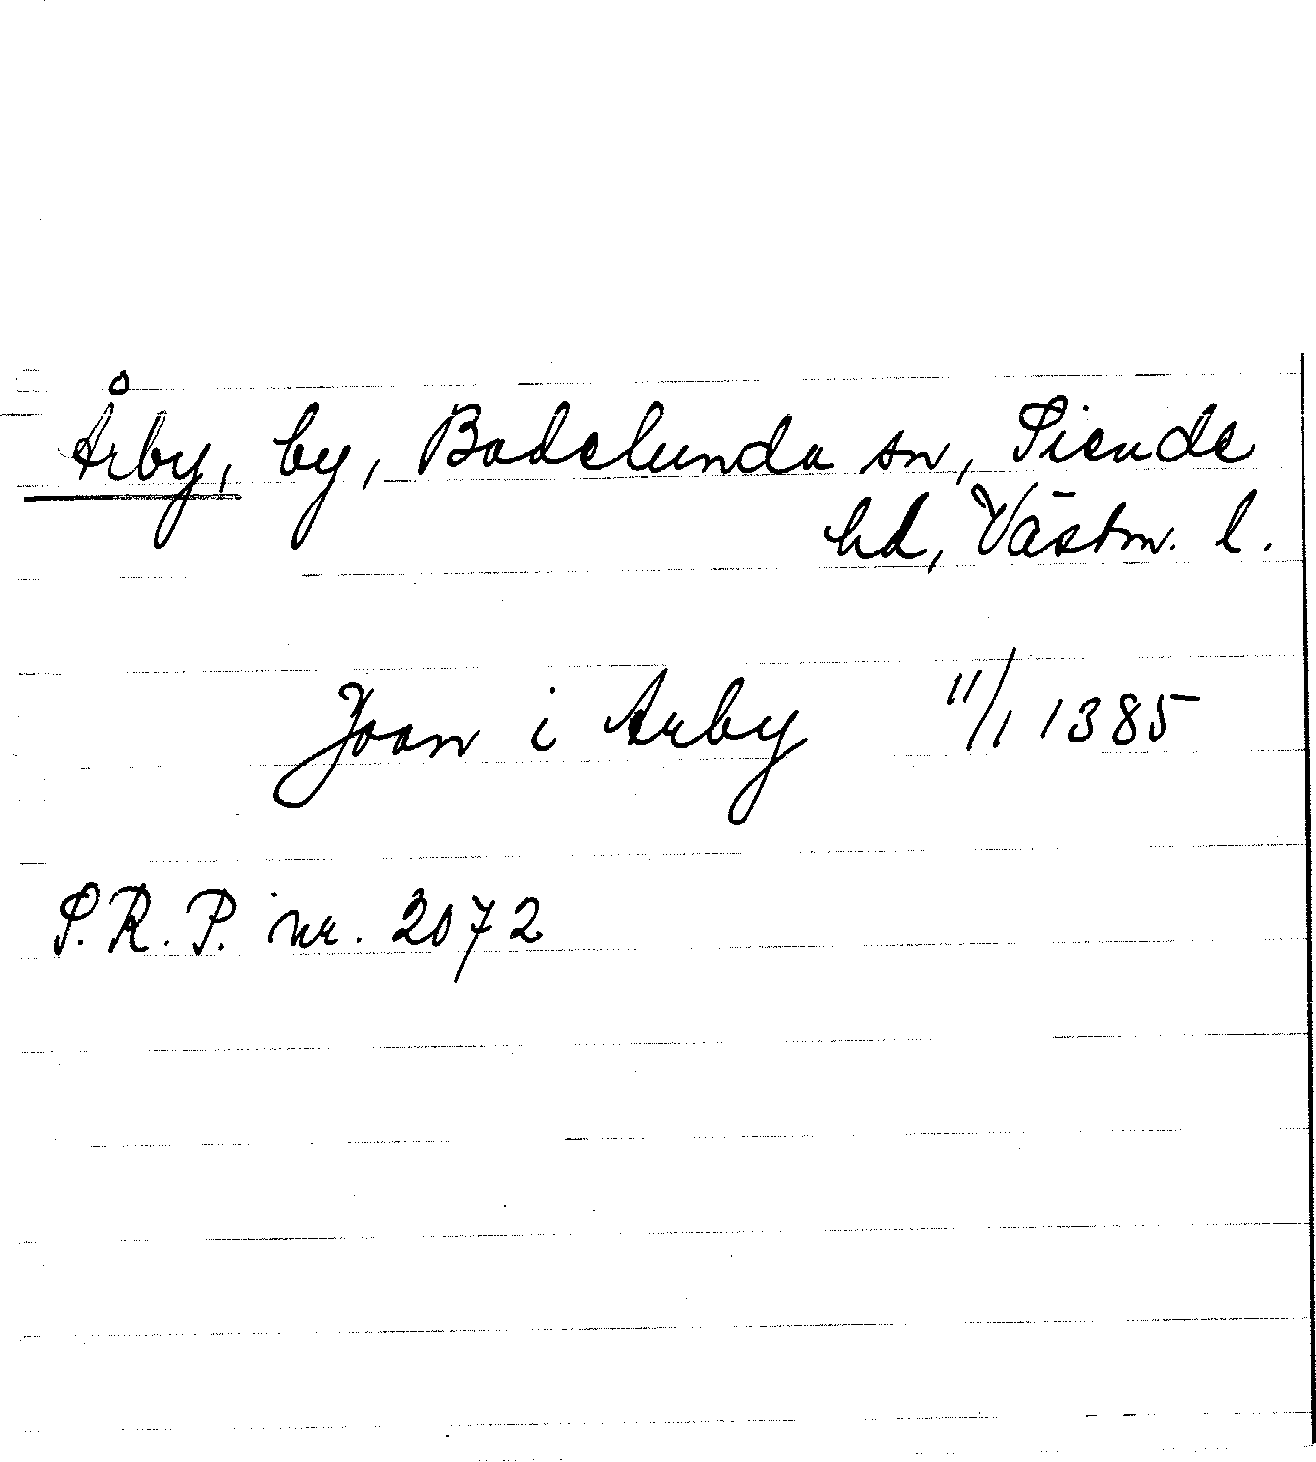 Årby, by, Badelunda sn, Siende
hd, Västm. l.
Joan i Arby 11/1 1385
S.R.P. nr. 2072